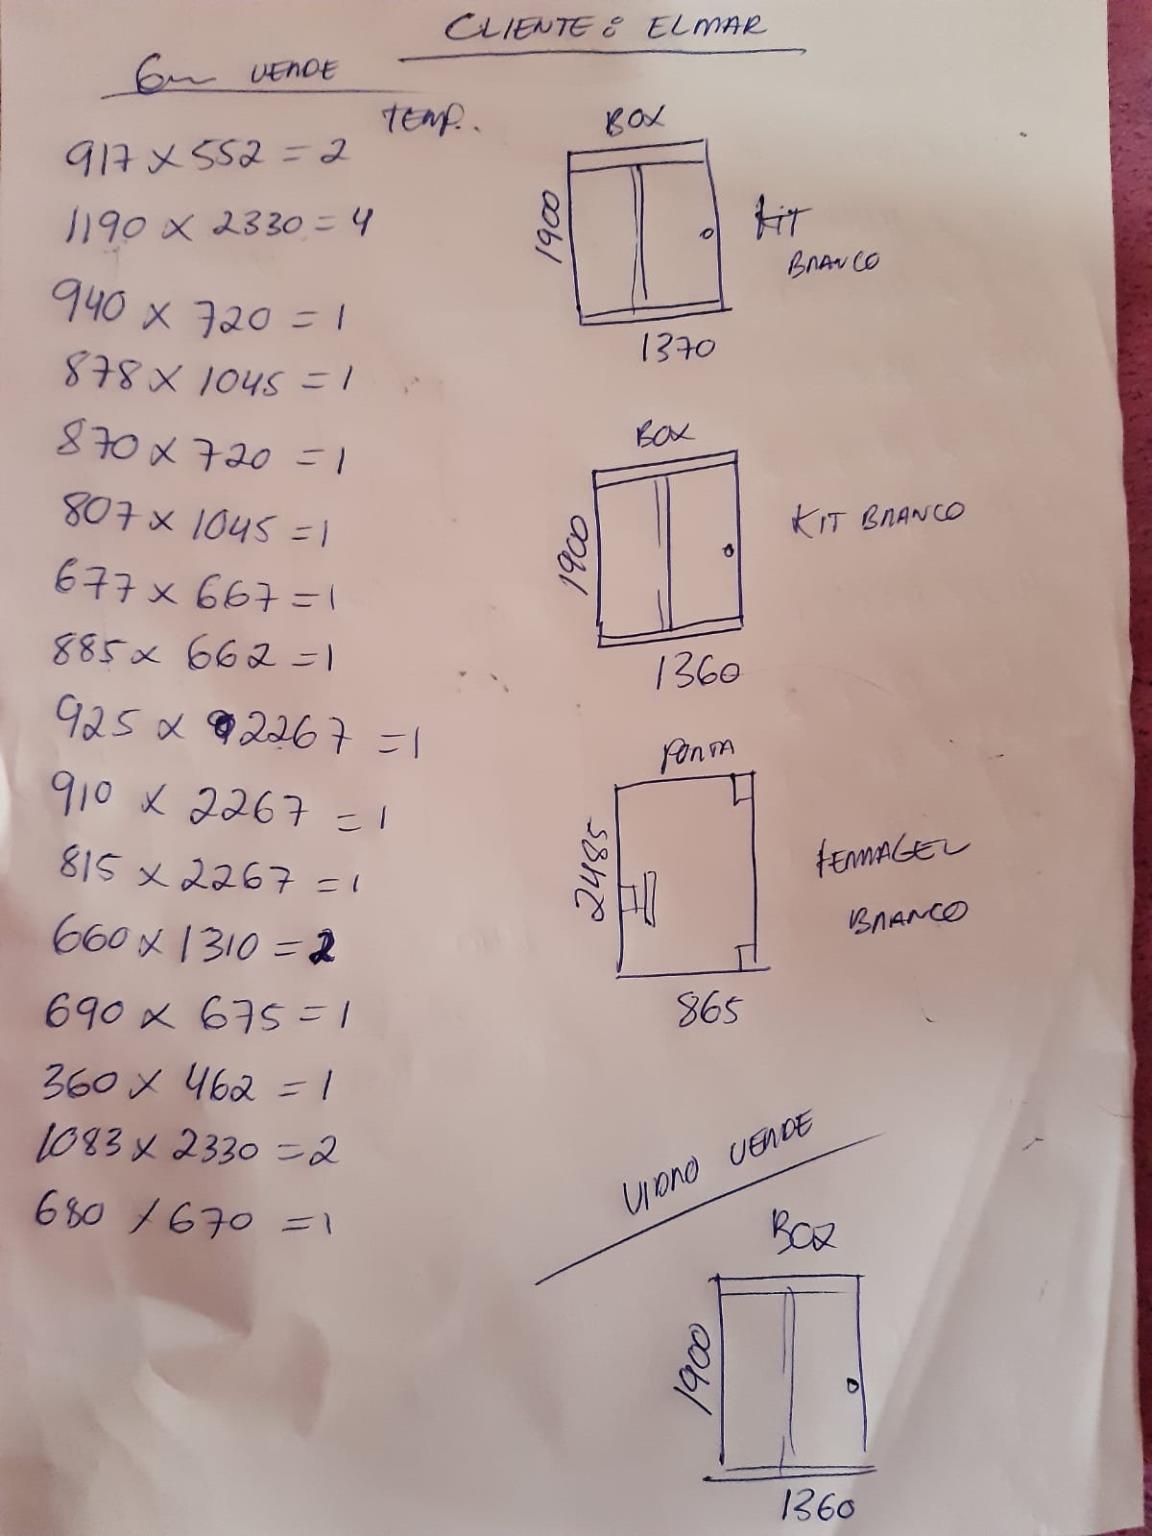 CLIENTE: ELMAR
6m VERDE
TEMP.
917 x 552 = 2
1190 x 2330 = 4
940 x 720 = 1
878 x 1045 = 1
870 x 720 = 1
807 x 1045 = 1
677 x 667 = 1
885 x 662 = 1
925 x 2267 = 1
910 x 2267 = 1
815 x 2267 = 1
660 x 1310 = 2
690 x 675 = 1
360 x 462 = 1
1083 x 2330 = 2
680 x 670 = 1
BOX
1900
KIT
BRANCO
1370
BOX
1900
KIT BRANCO
1360
PORTA
2485
FERRAGEL
BRANCO
865
VIDRO VERDE
BOX
1900
1360